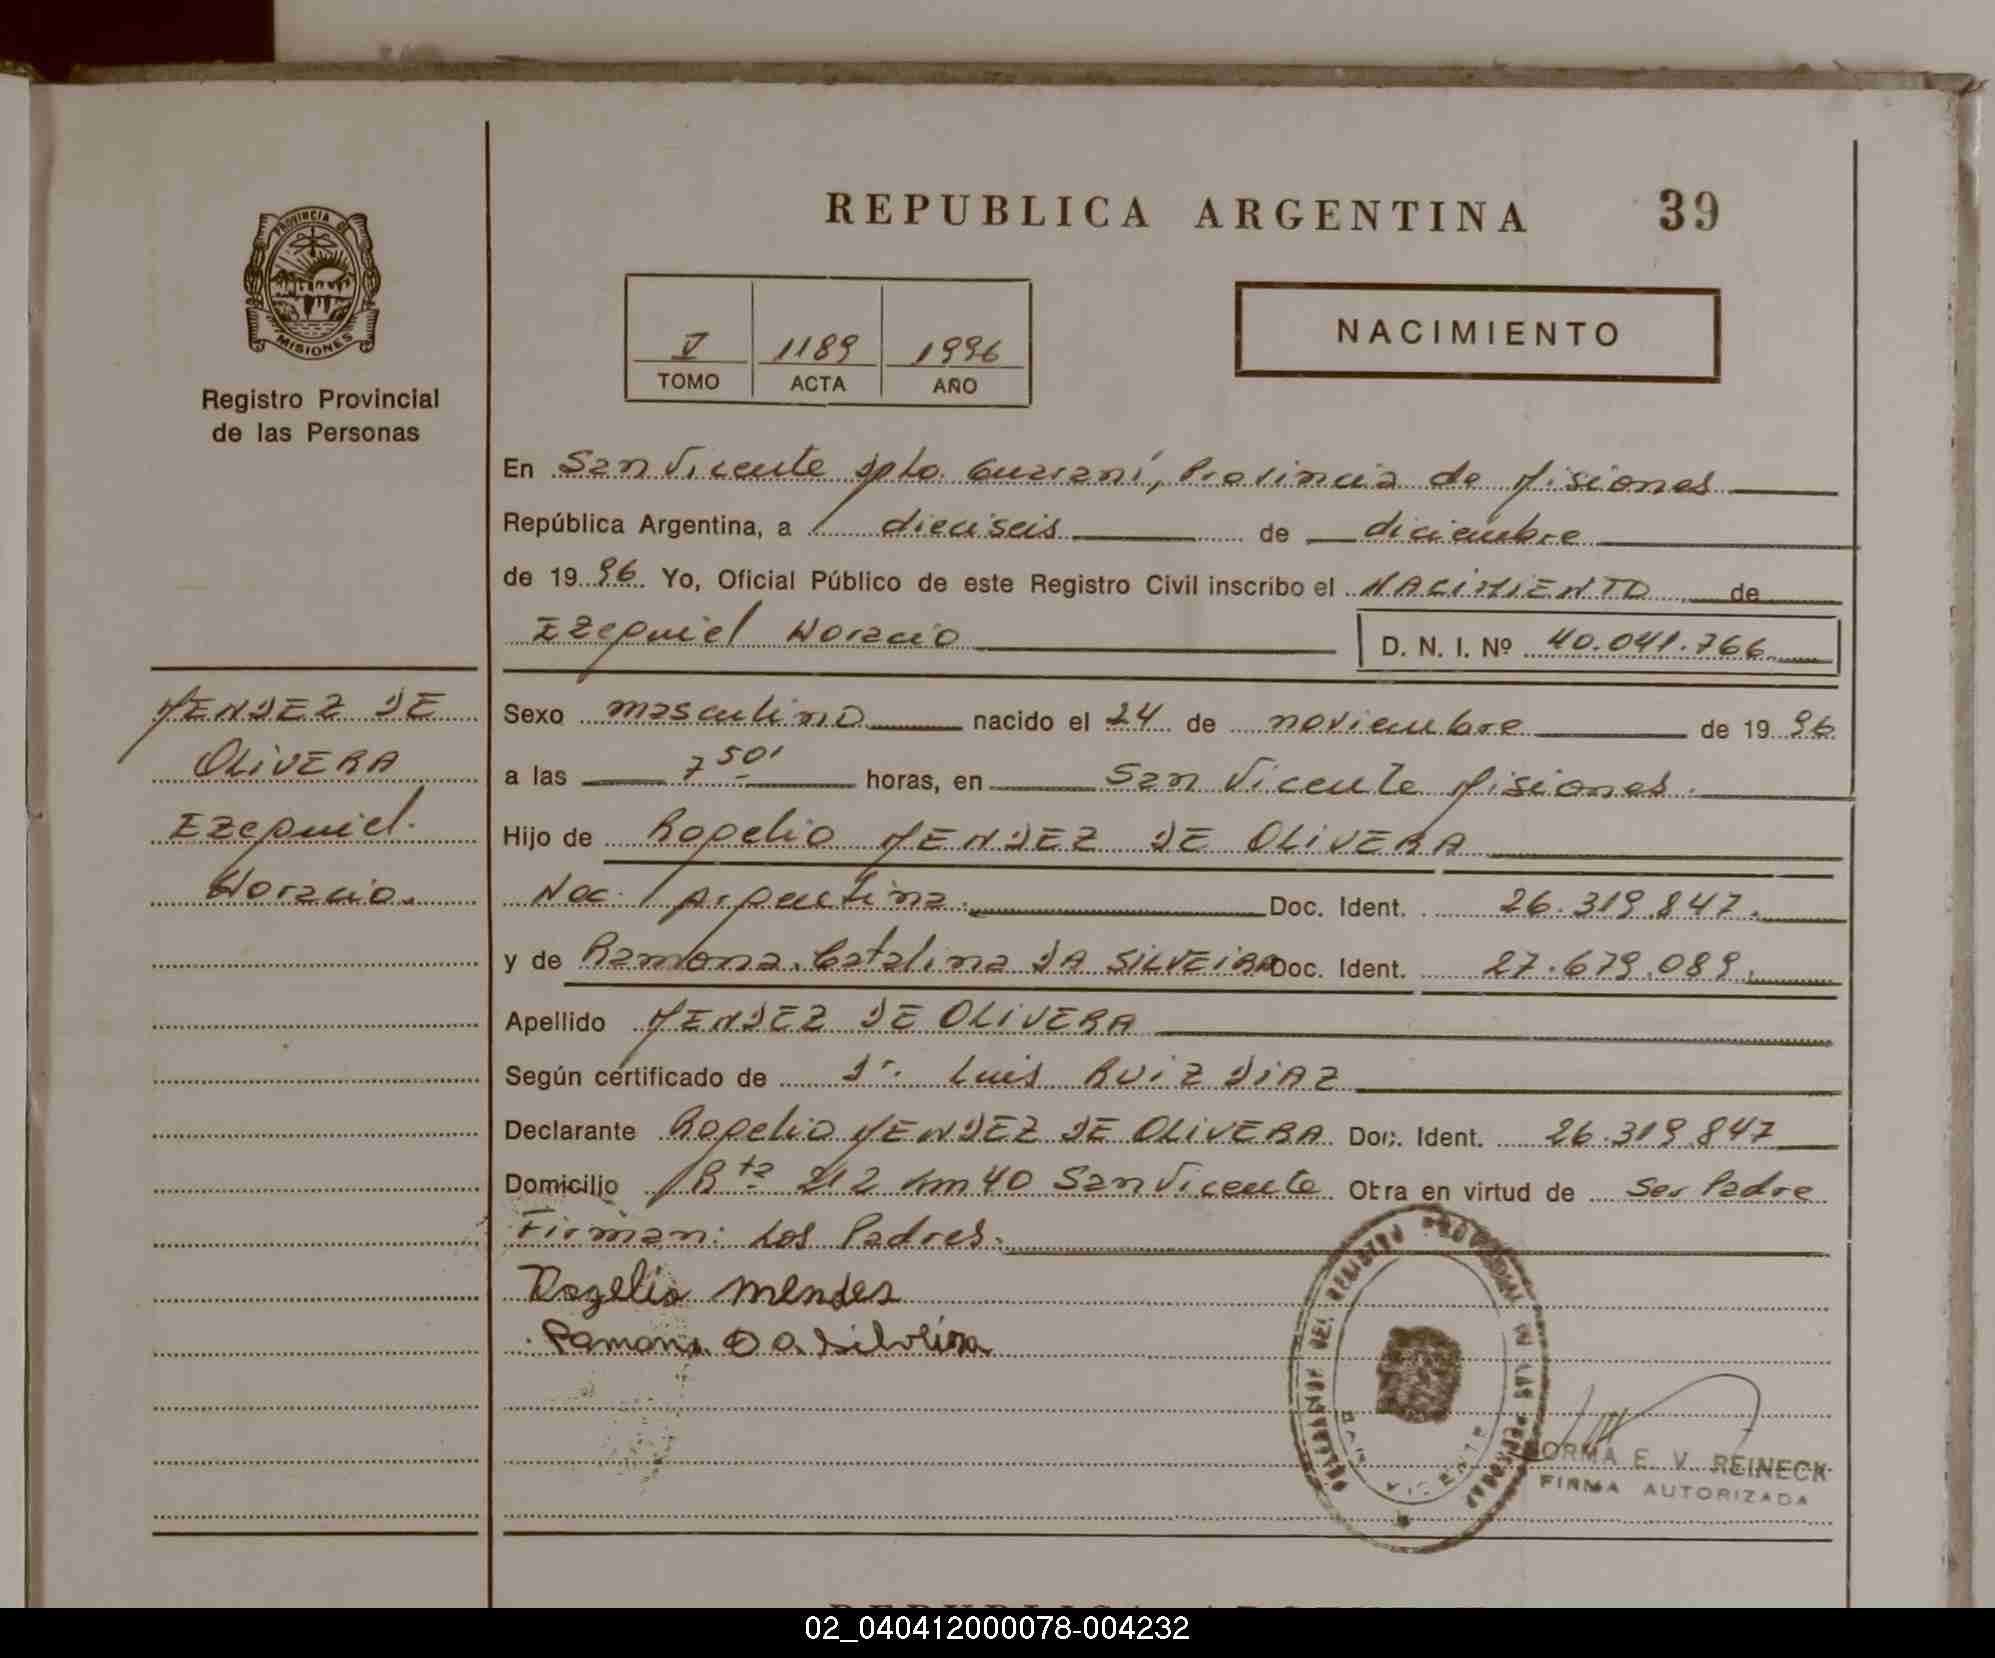 REPUBLICA ARGENTINA 39
PROVINCIA DE
MISIONES
Registro Provincial
de las Personas
V 1189 1996
TOMO ACTA AÑO
NACIMIENTO
En San Vicente Dpto. Guaraní, Provincia de Misiones
República Argentina, a dieciseis de diciembre
de 1996 Yo, Oficial Público de este Registro Civil inscribo el NACIMIENTO de
Ezequiel Horacio D. N. I. Nº 40.041.766
MENDEZ DE
OLIVERA
Ezequiel
Horacio.
Sexo masculino nacido el 24 de noviembre de 1996
a las 7 50' horas, en San Vicente Misiones.
Hijo de Rogelio MENDEZ DE OLIVERA
Nac. Argentina. Doc. Ident. 26.319.847.
y de Ramona Catalina DA SILVEIRA Doc. Ident. 27.679.089.
Apellido MENDEZ DE OLIVERA
Según certificado de Dr. Luis RUIZ DIAZ
Declarante Rogelio MENDEZ DE OLIVERA Doc. Ident. 26.319.847
Domicilio Rta 212 Km 40 San Vicente Obra en virtud de Ser Padre
Firman: Los Padres.
Rogelio Mendes
Ramona Da Silveira
DEL REGISTRO PROVINCIAL DE LAS PERSONAS
SAN VICENTE
NORMA E. V. REINECK
FIRMA AUTORIZADA
02_040412000078-004232